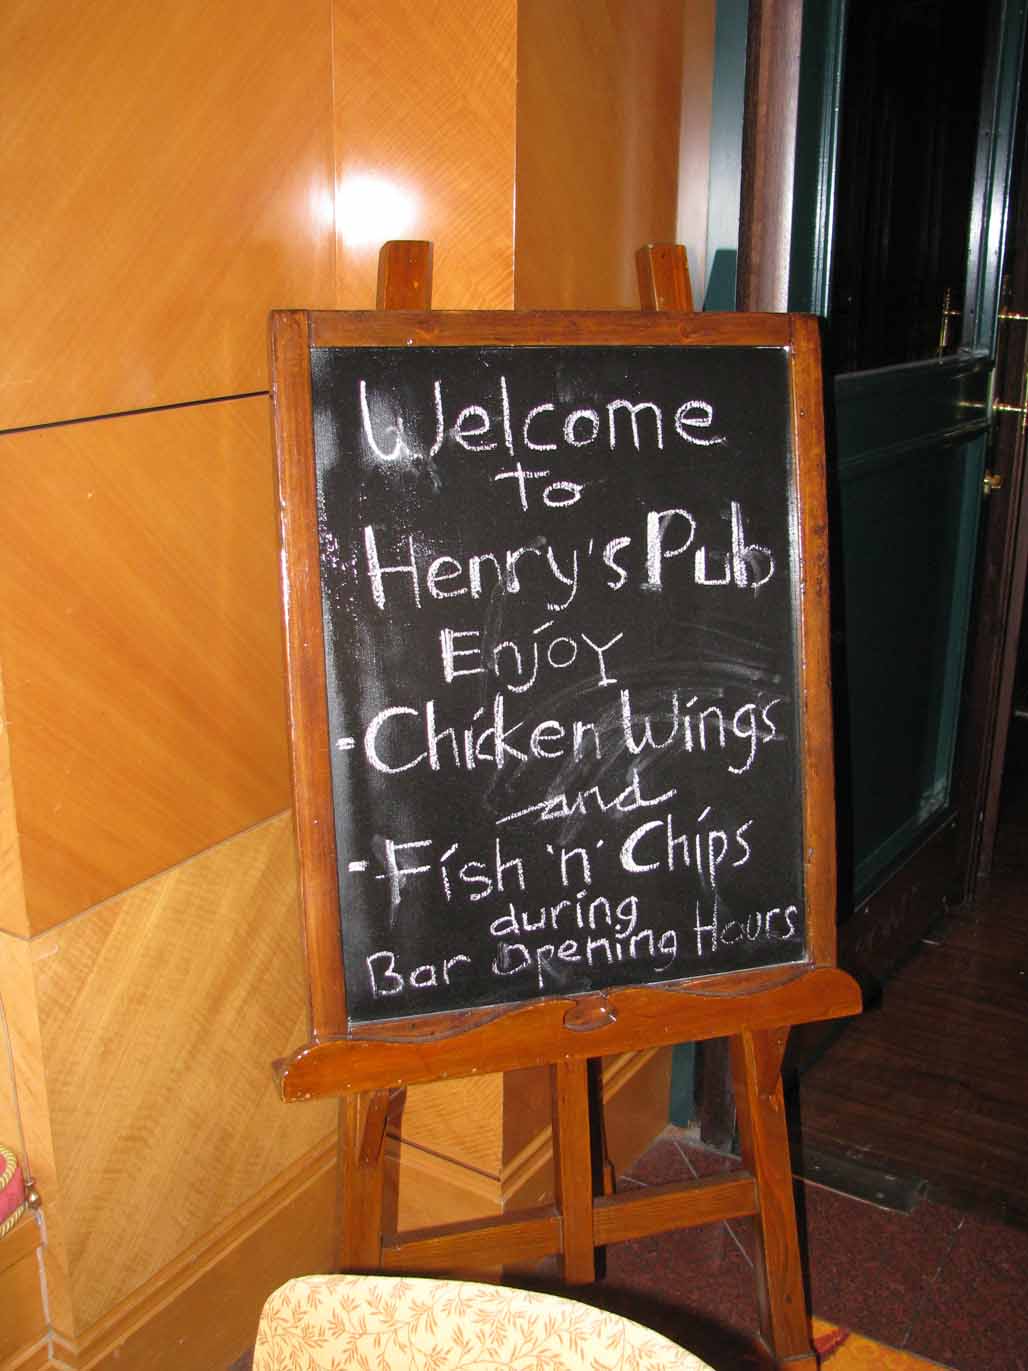 Welcome
to
Henry's Pub
Enjoy
- Chicken Wing's
and
- Fish 'n' Chips
during
Bar Opening Hours